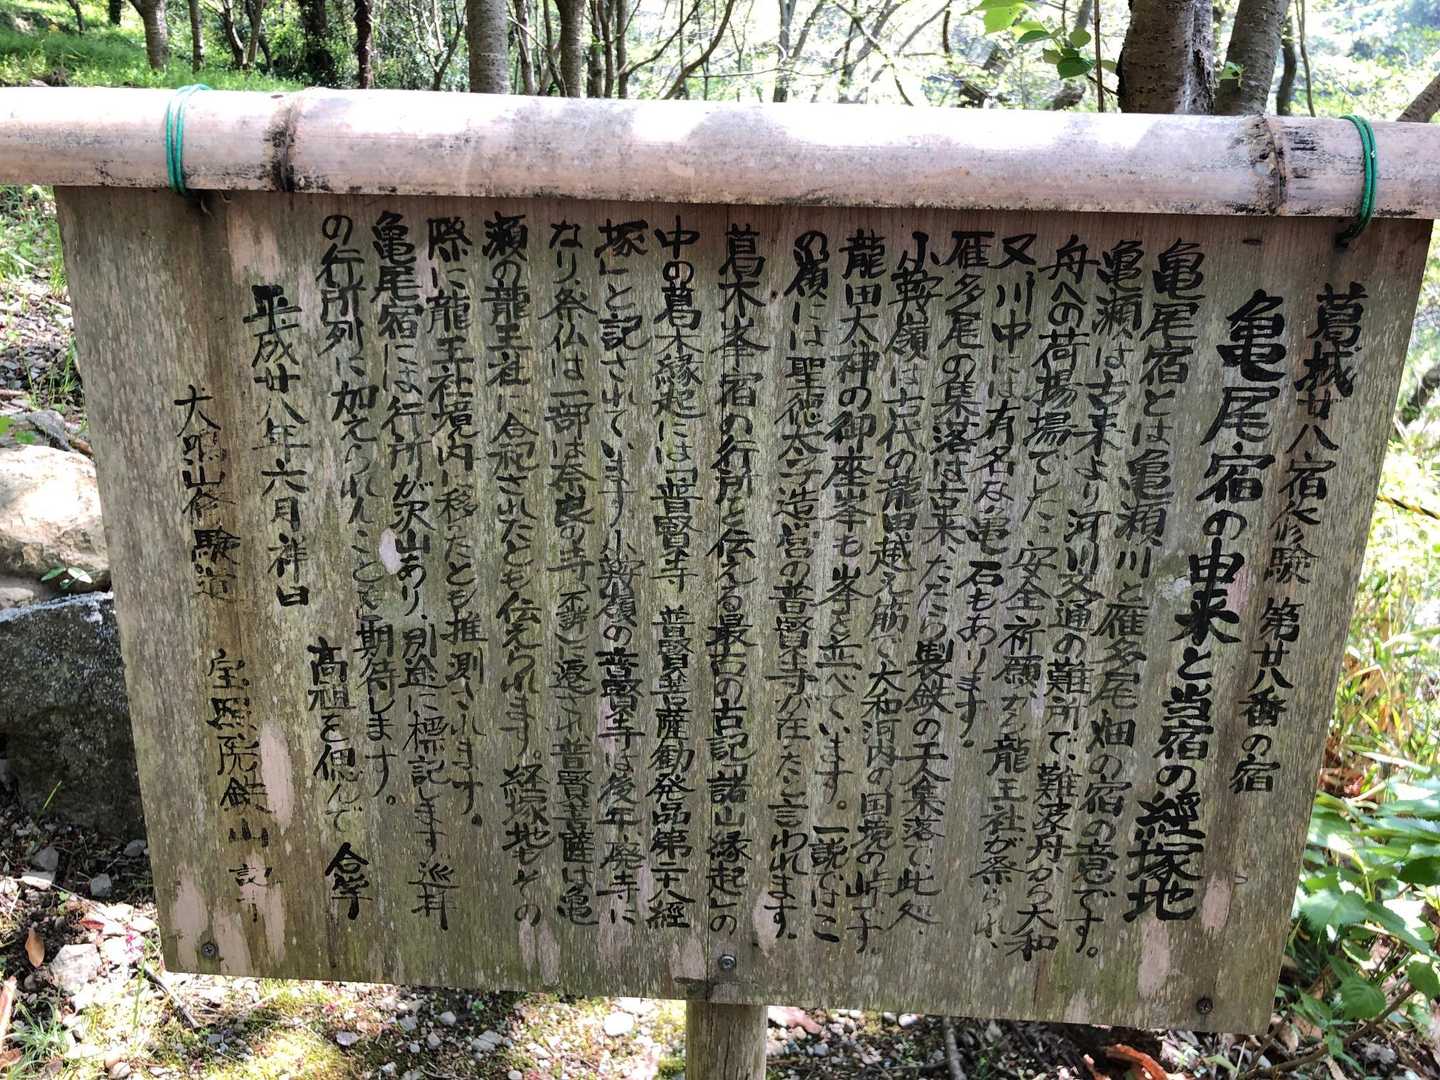 葛城廿八宿修験 第廿八番の宿
亀尾宿の由来と当宿の經塚地
亀尾宿とは亀瀬川と雁多尾畑の宿の意です。
亀瀬は古来より河川交通の難所で、難波舟から大和
舟への荷揚場でした。安全祈願する龍王社が祭られ、
又川中には有名な亀石もあります。
雁多尾の集落は古来たたら製鉄の千余集落で、此処、
小鞍嶺は古代の龍田越え筋で大和河内の国境の峠です。
龍田大神の御座峯も峯を並べています。一説ではこ
の嶺には聖徳太子造営の普賢寺が在ったと言われます。
葛木峯宿の行所と伝える最古の古記「諸山縁起」の
中の葛木縁起には「普賢寺 普賢菩薩勧発品第二十八經
塚」と記されています。小鞍嶺の普賢寺は後年、廃寺に
なり、祭仏は一部は奈良の寺(不詳)に遷され普賢菩薩は亀
瀬の龍王社に合祀されたとも伝えられます。経塚地もその
際に龍王社境内に移ったとも推測されます。
亀尾宿には行所が沢山あり、別途に標記します 巡拜
の行所列に加えられんことを期待します。
高祖を偲んで 合掌
平成廿八年六月 祥日
犬鳴山修験道 宝照院鉄山 記す